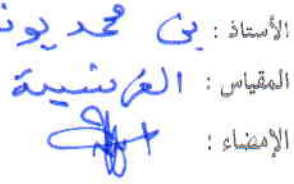 الأستاذ : بن محمد يون
المقياس : الفرنسية
الإمضاء :